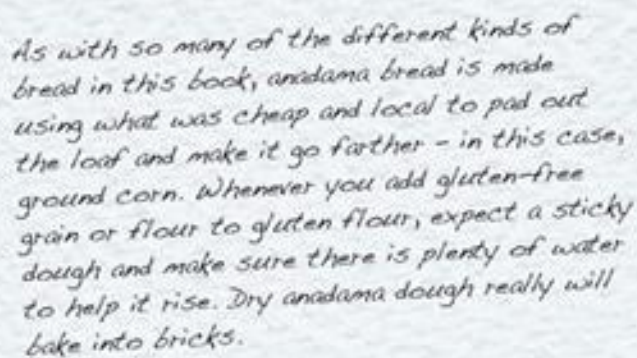 As with so many of the different kinds of
bread in this book, anadama bread is made
using what was cheap and local to pad out
the loaf and make it go farther - in this case,
ground corn. Whenever you add gluten-free
grain or flour to gluten flour, expect a sticky
dough and make sure there is plenty of water
to help it rise. Dry anadama dough really will
bake into bricks.